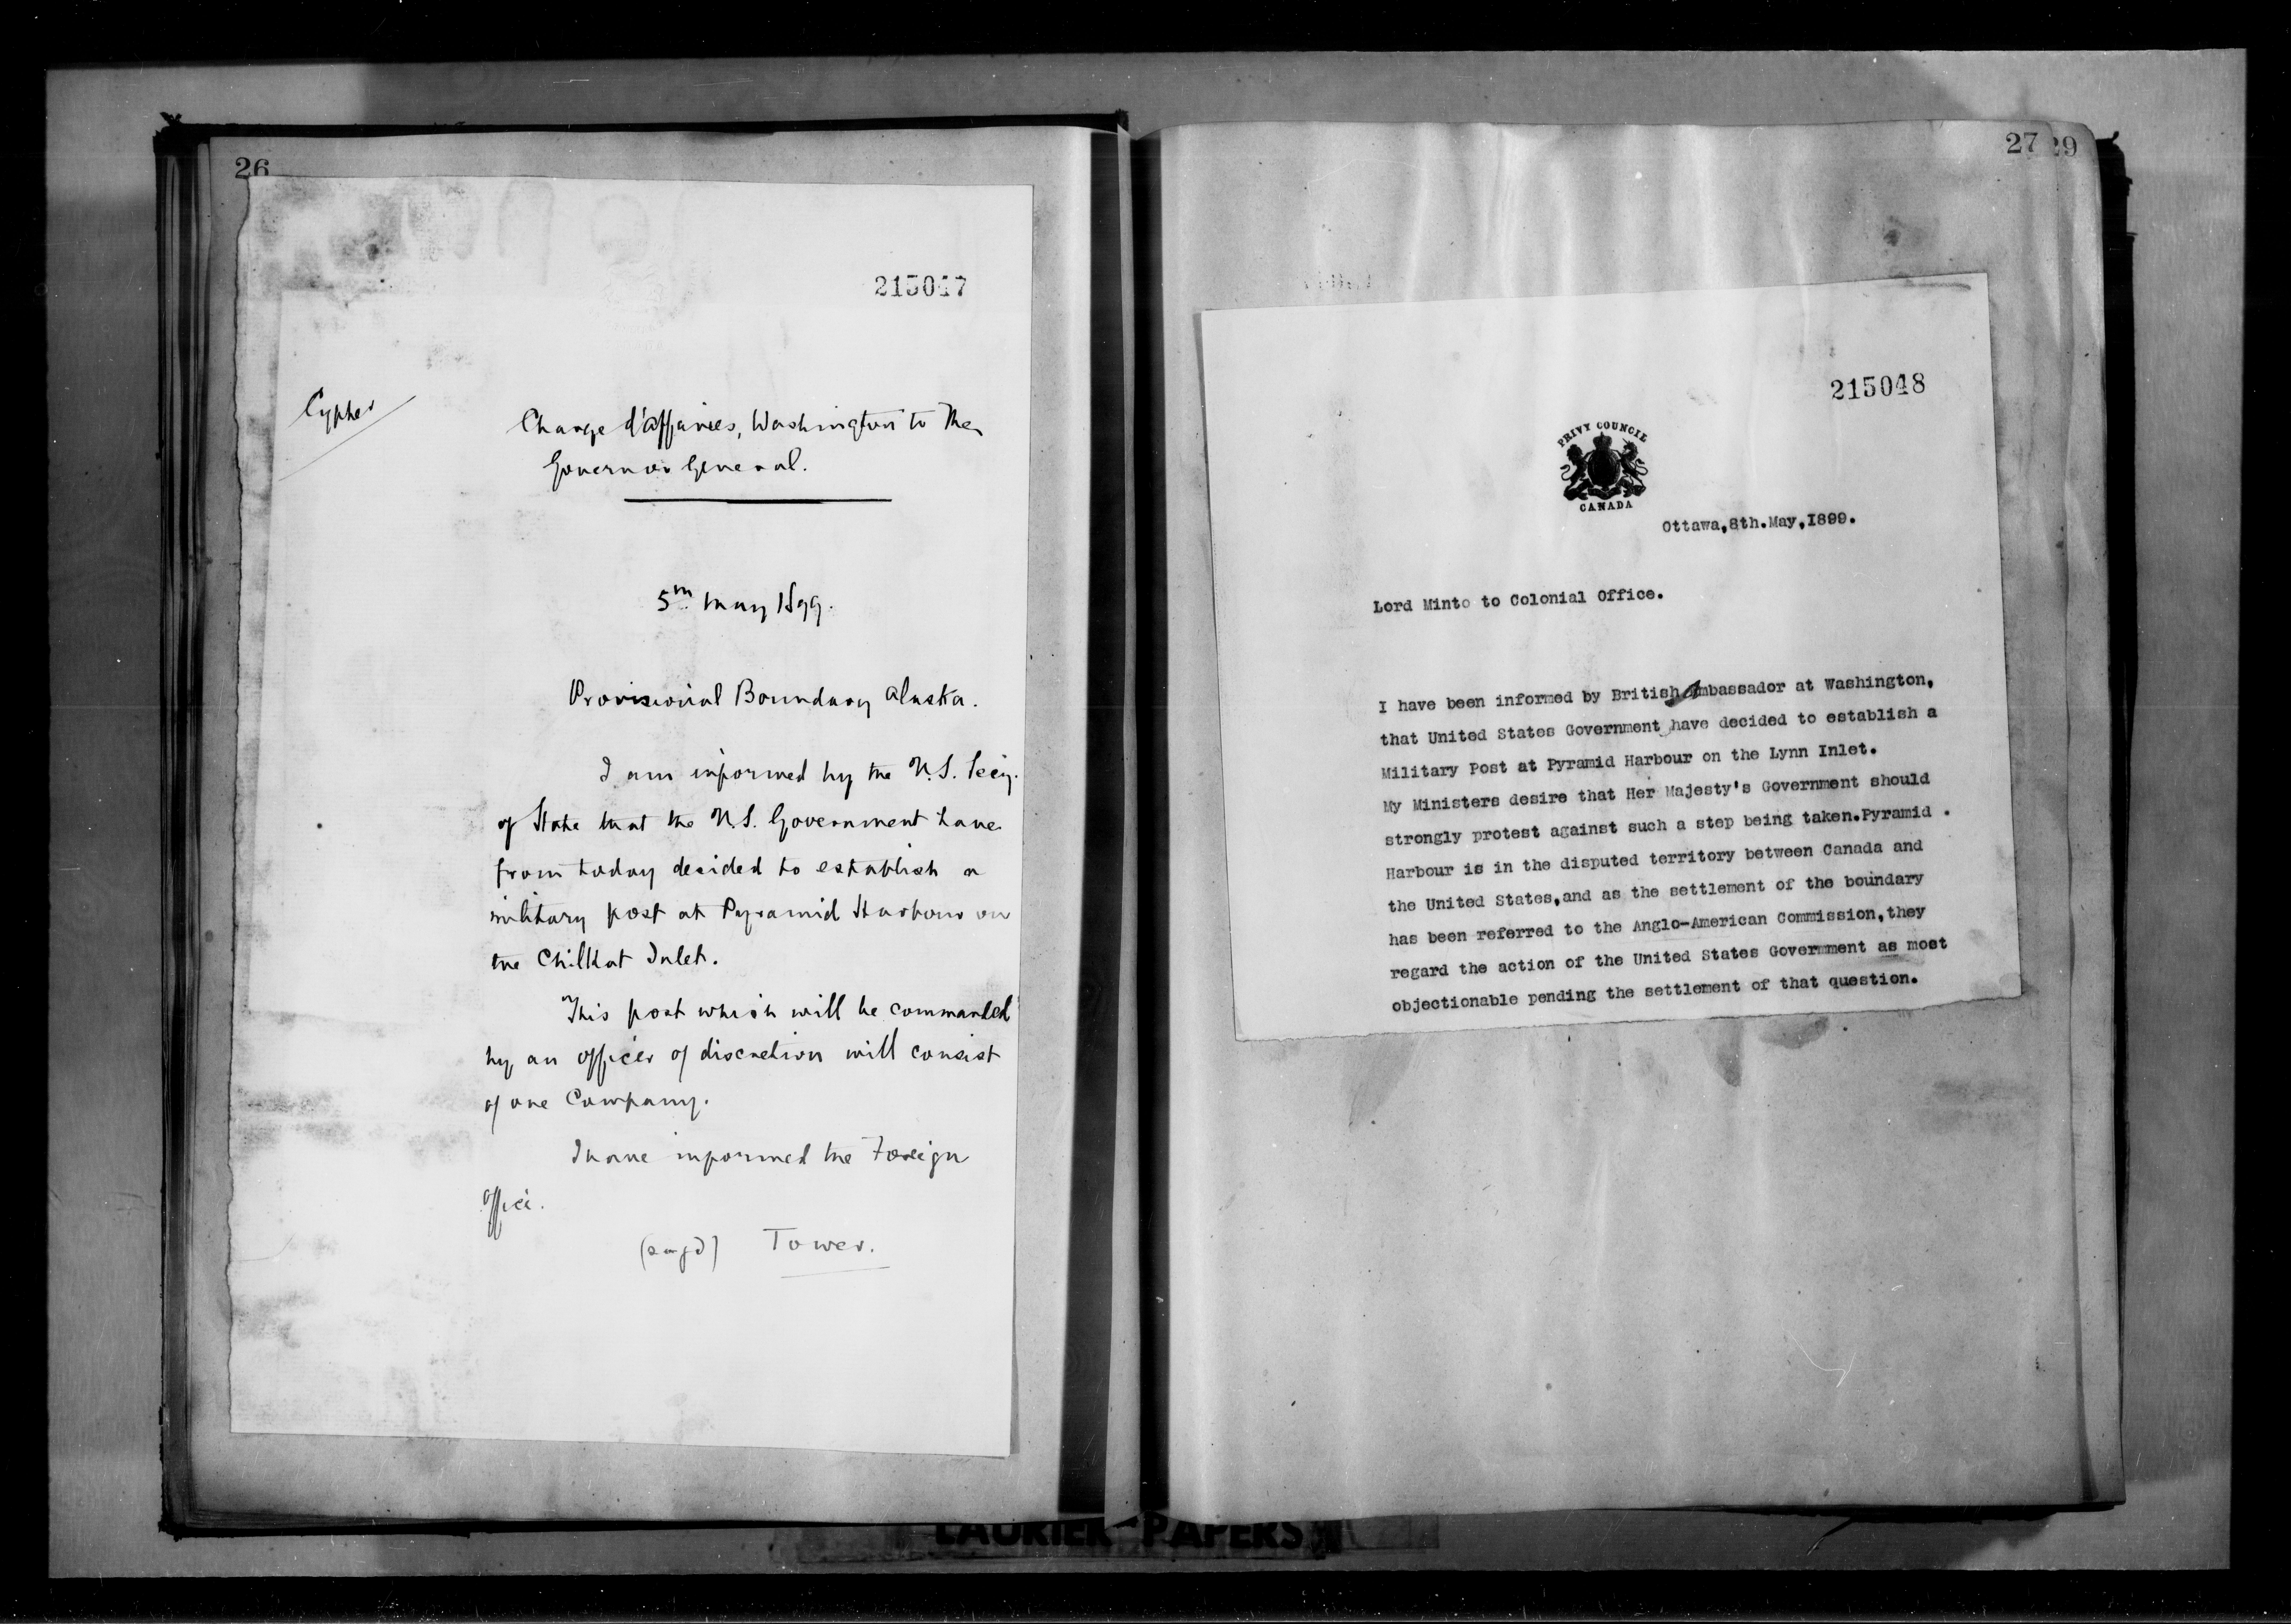 26
215047
Cypher
Charge d'affaires, Washington to The
Governor General.
5th May 1899.
Provisional Boundary Alaska.
I am informed by the U.S. Secy.
of State that the U.S. Government have
from today decided to establish a
military post at Pyramid Harbour on
the Chilkat Inlet.
This post which will be commanded
by an officer of discretion will consist
of one Company.
I have informed the Foreign
Office.
Tower.
27 29
215048
PRIVY COUNCIL
CANADA
Ottawa,8th.May,I899.
Lord Minto to Colonial Office.
I have been informed by British Ambassador at Washington,
that United States Government have decided to establish a
Military Post at Pyramid Harbour on the Lynn Inlet.
My Ministers desire that Her Majesty's Government should
strongly protest against such a step being taken.Pyramid .
Harbour is in the disputed territory between Canada and
the United States,and as the settlement of the boundary
has been referred to the Anglo-American Commission,they
regard the action of the United States Government as most
objectionable pending the settlement of that question.
LAURIER PAPERS